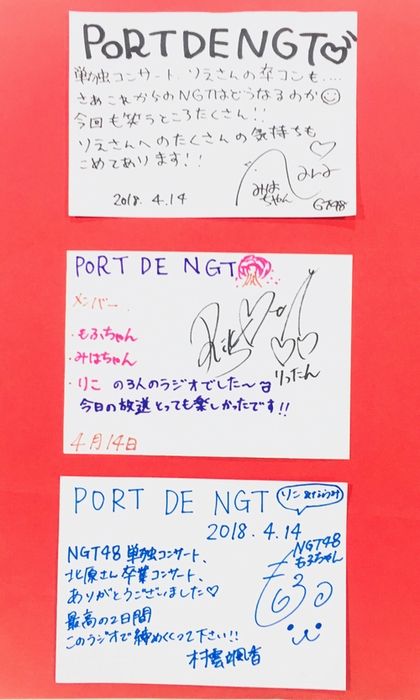 PORT DE NGT
単独コンサート、りえさんの卒コンも....
さあこれからのNGTはどうなるのか
今回も笑うところたくさん!!
りえさんへのたくさんの気持ちも
こめてあります!!
みはちゃん
2018. 4. 14
GT48
PORT DE NGT
メンバー
・もふちゃん
・みはちゃん
・りこ の3人のラジオでした〜
りったん
今日の放送とっても楽しかったです!!
4月14日
PORT DE NGT
2018. 4. 14
NGT48 単独コンサート、
北原さん卒業コンサート、
ありがとうございました♡
最高の2日間
このラジオで締めくくって下さい!!
NGT48
もふちゃん
村雲颯香